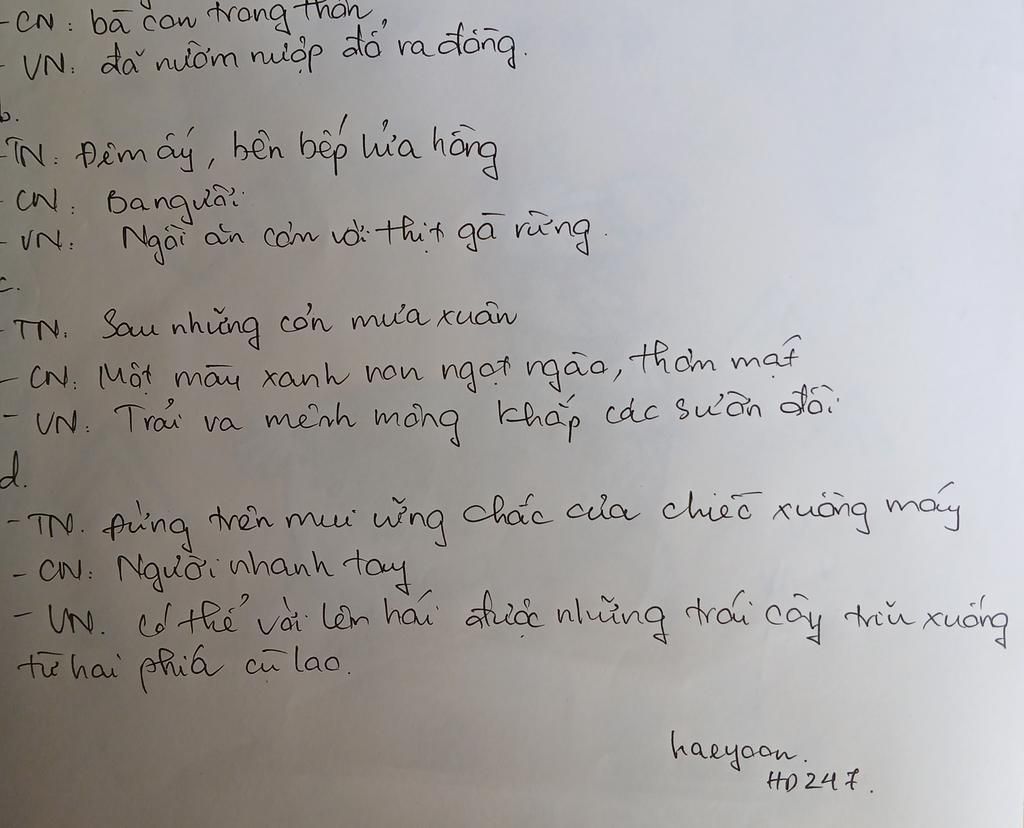 - CN: bà con trong thôn,
- VN: đã nườm nượp đổ ra đồng.
b.
- TN: Đêm ấy, bên bếp lửa hồng
- CN: Ba người
- VN: Ngồi ăn cơm với thịt gà rừng.
c.
- TN: Sau những cơn mưa xuân
- CN: Một màu xanh non ngọt ngào, thơm mát
- VN: Trải ra mênh mông khắp các sườn đồi
d.
- TN. Đứng trên mui vững chắc của chiếc xuồng máy
- CN: Người nhanh tay
- VN. Có thể với lên hái được những trái cây trĩu xuống
từ hai phía cù lao.
haeyoon.
HD247.